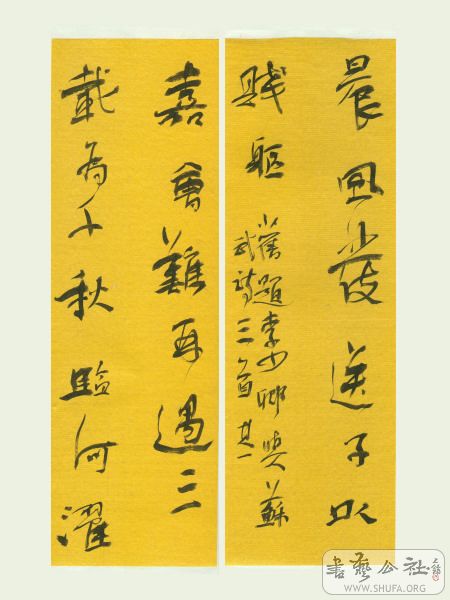 晨風發送子以
賤軀
舊題李少卿與蘇
武詩三首其一
嘉會難再遇三
載為千秋臨河濯
書藝公社
WWW.SHUFA.ORG